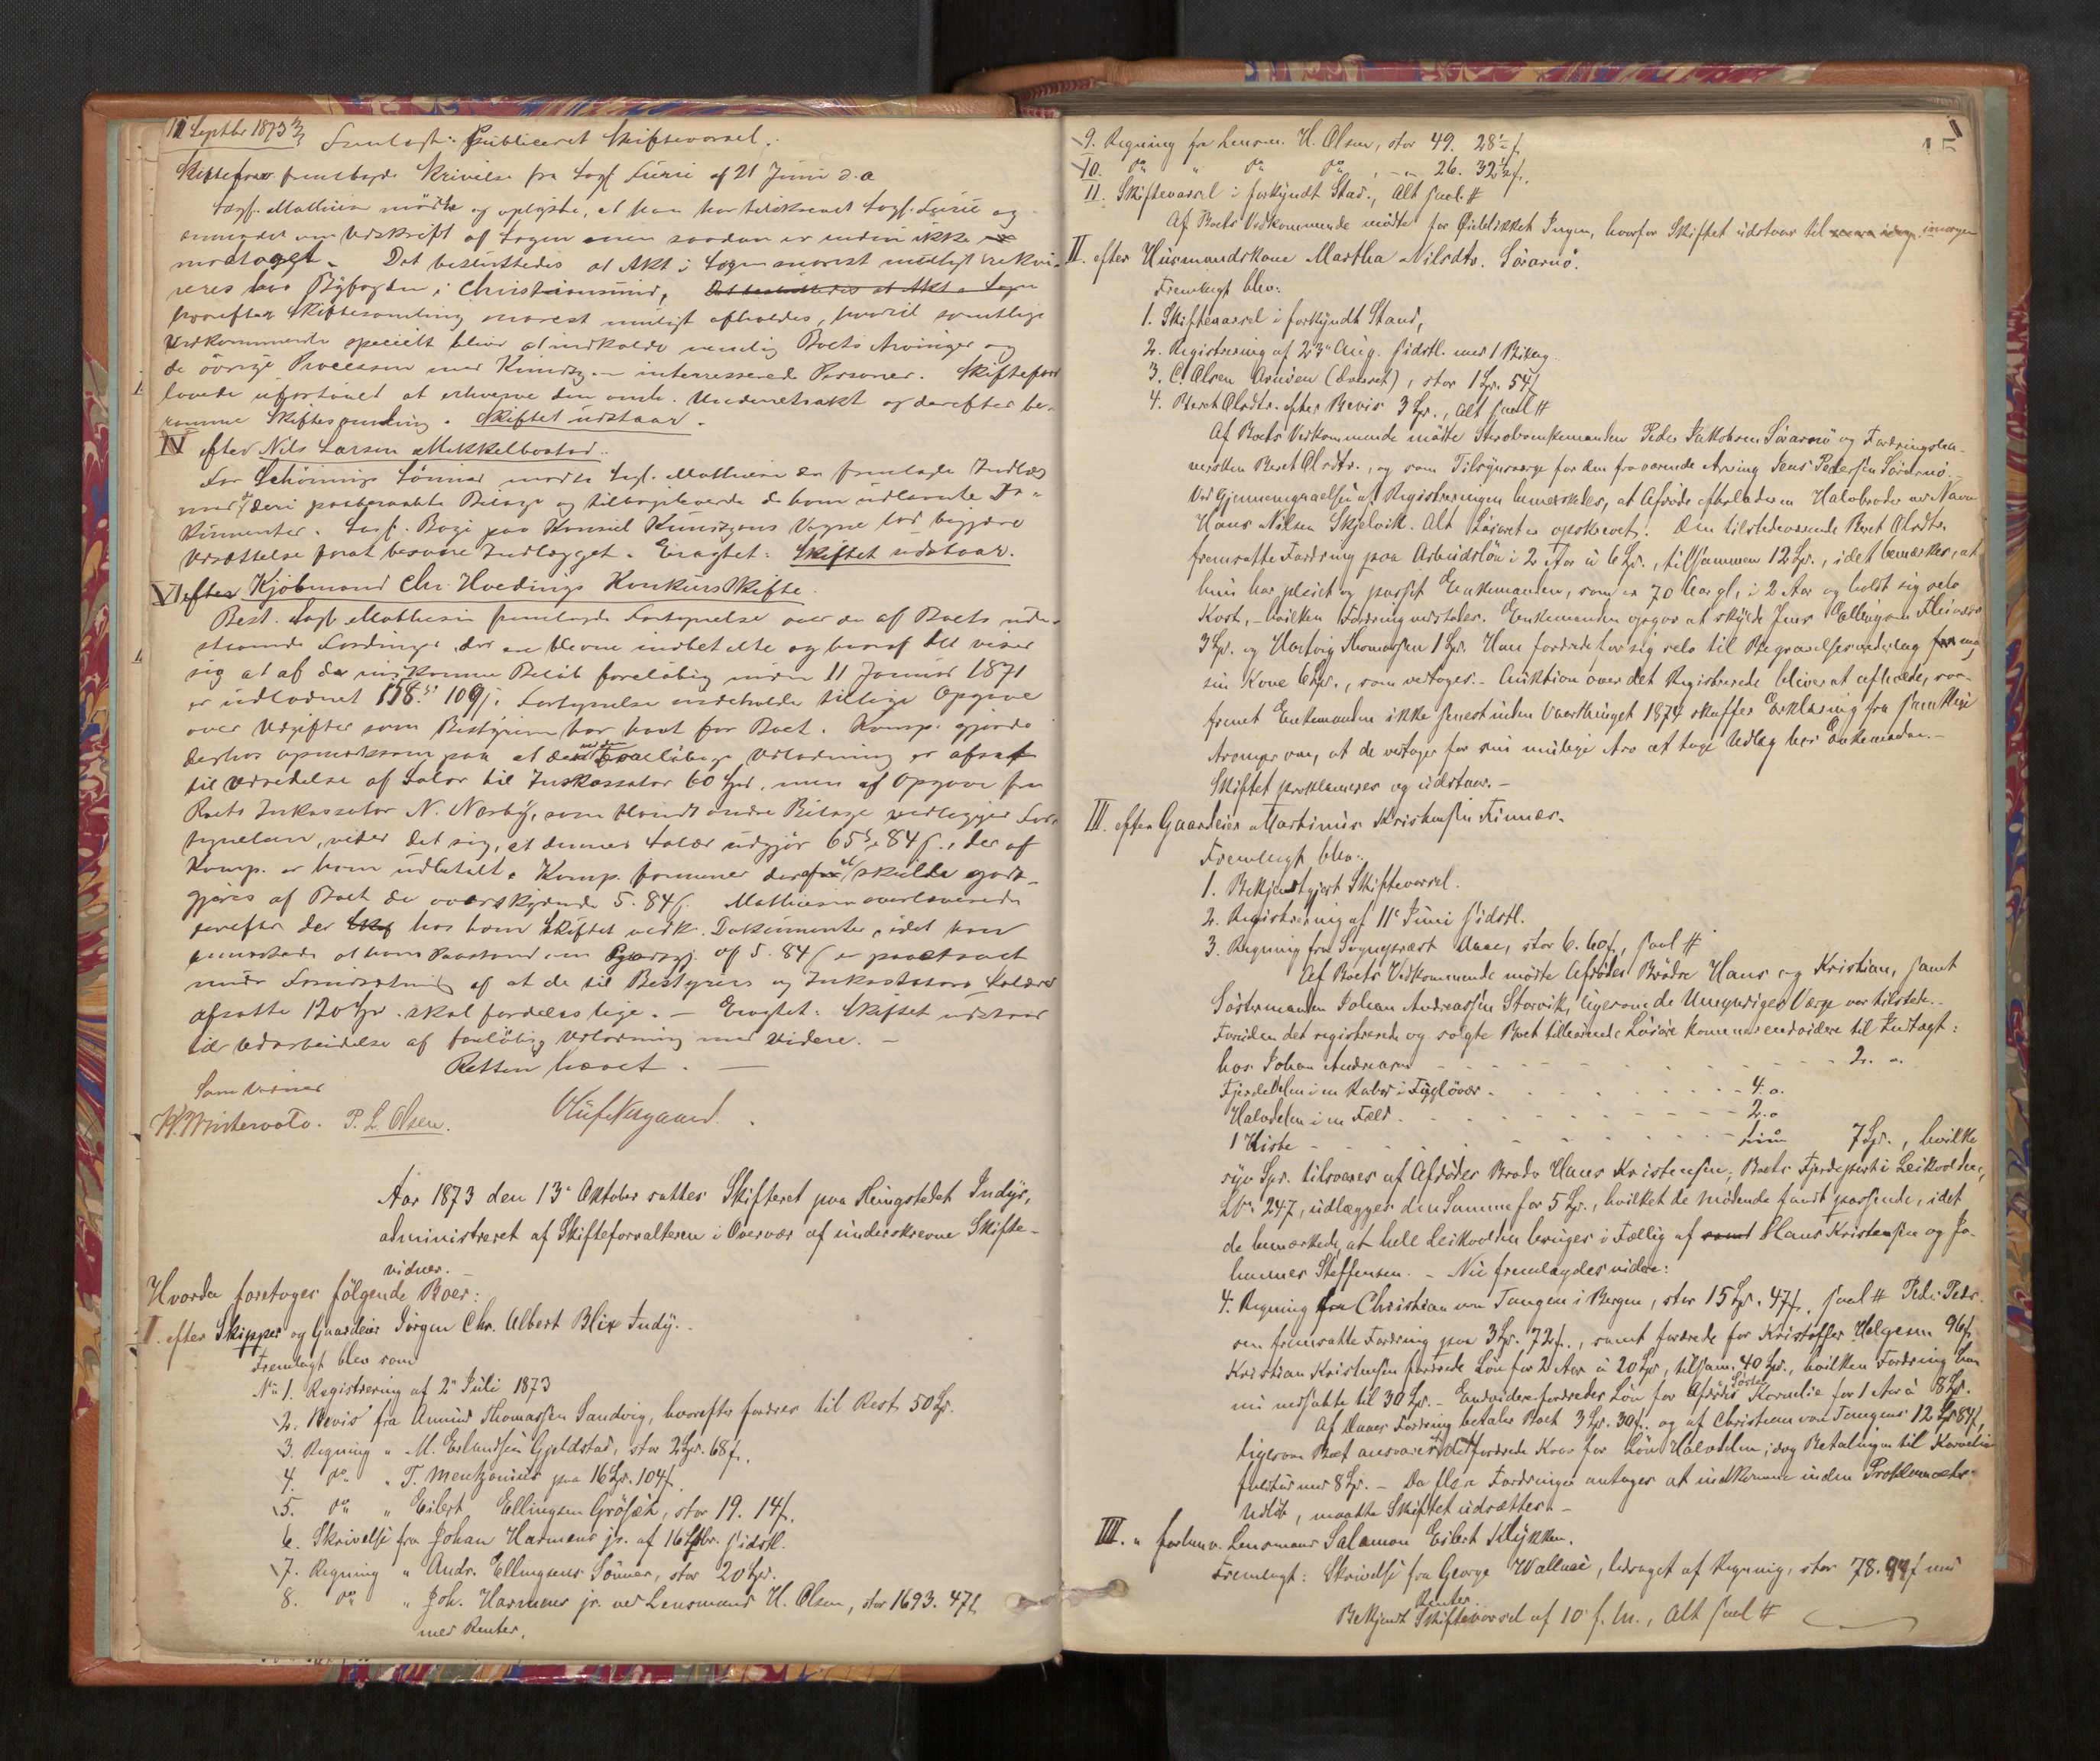 12 Septbr 1873
Fremlagt: Publiceret Skiftevarsel.
Skifteforv. fremlagde Skrivelse fra Sagf. Lurie af 21 Juni d. a
Sagf. Mathiesen mödte og oplyste, at han har tilskrevet Sagf. Lurie og
anmodet om Udskrift af Sagen men saadan er endnu ikke
modtaget. Det besluttedes at Akt i Sagen snarest muligt rekvi-
reres hos Byfogden i Christiansund, Det besluttedes at Akt i Sagen
hvorefter Skiftesamling snarest muligt afholdes, hvortil samtlige
Vedkommende specielt bliver at indkalde nemlig Boets Arvinger og
de övrige i Processen med interesserede Personer. Skifteforv
lovede ufortövet at erhverve den omh. Underretsakt og derefter be-
ramme Skiftesamling. Skiftet udstaar.
IV efter Nils Larsen Mikkelbostad.
For Schönings Sönner mödte Sagf. Mathiesen der fremlagde Indlæg
med deri paaberaabte Bilage og tilbageleverede de ham udlaante Do-
kumenter. Sagf. Bagi paa Konsul Knudtzons Vegne lod begjære
Udsættelse forat besvare Indlægget. Eragtet: Skiftet udstaar.
VI efter Kjöbmand Chr. Hvedings Konkursskifte.
Best. Sagf. Mathiesen fremlagde Fortegnelse over de af Boets ude-
staaende Fordringer der er blevne indbetalte og hvoraf det viser
sig at af de indkomne Belöb foreløbig under 11 Januar 1871
er udloddet 158. 109 ſ. Fortegnelsen indeholder tillige Opgave
over Udgifter som Bestyreren har havt for Boet. Komp. gjorde
derhos opmærksom paa at der ved den foreløbige Udlodning er afsat
til Udredelse af Salær til Inkassator 60 Spd, men af Opgave fra
Boets Inkassator N. Norby, som blandt andre Bilage vedlægges For-
tegnelsen, viser det sig, at dennes Salær udgjör 65 84 ſ., der af
Komp. er ham udbetalt. Komp. formener derfor at skulde godt-
gjöres af Boet de overskydende 5. 84 ſ. Mathiesen overleverede
derefter de hos ham Skiftet vedk. Dokumenter, idet han
bemærkede at hans Paastand om Godtgj. af 5. 84 ſ er fremsat
under Forudsætning af at de til Bestyrers og Inkassators Salærer
afsatte 120 Spd. skal fordeles lige. — Eragtet: Skiftet udstaar
til Udarbeidelse af foreløbig Udlodning med videre. —
Retten hævet. —
Som Vidner
P. L. Olsen.
Aar 1873 den 13de Oktober sattes Skifteret paa Thingstedet Indyr,
administreret af Skifteforvalteren i Overvær af underskrevne Skifte-
vidner. —
Hvorda foretoges fölgende Boer:
I. efter Skipper og Gaardeier Jörgen Chr. Albert Blix Indyr.
Fremlagt blev som
No 1. Registrering af 2den Juli 1873
2. Bevis fra Amund Thomassen Sandvig, hvorefter fordres til Rest 50 Sp.
3. Regning " M. Erlandsen Gjeldstad, stor 2 Spd. 68 ſ.
4. do " T. Mentzonius paa 16 Sp. 104 ſ.
5. do " Eilert Ellingsen Gröset, stor 19. 14 ſ.
6. Skrivelse fra Johan Harmens jr. af 16 Sptbr. sidstl.
7. Regning " Andr. Ellingsens Sönner, stor 20 Spd.
8. do " Joh. Harmens jr. ved Lensmand H. Olsen, stor 1693. 47 ſ
med Renter.
9. Regning fra Lensm. H. Olsen, stor 49. 28 ½ ſ.
10. do " do do, " " 26. 32 ½ ſ.
11. Skiftevarsel i forkyndt Stand, Alt saal. #
Af Boets Vedkommende mödte for Öieblikket Ingen, hvorfor Skiftet udstaar til imorgen
II. efter Husmandskone Martha Nilsdtr. Sörarnö.
Fremlagt blev:
1. Skiftevarsel i forkyndt Stand,
2. Registrering af 23de Aug. sidstl. med 1 Bilag.
3. C. Olsen Arnöen, stor 1 Sp. 54 ſ
4. Beret Olsdtr. efter Bevis 3 Sp., Alt saal #
Af Boets Vedkommende mödte Stervboenkemanden Peder Jakobsen Sörarnö og Fordringsha-
versken Beret Olsdtr., og som Tilsynsværge for den fraværende Arving Jens Pedersen Sörarnö. —
Ved Gjennemgaaelsen af Registreringen bemærkedes, at Afdöde efterlader en Halvbroder ved Navn
Hans Nilsen Skjelvik. Alt Lösöret er opskrevet. Den tilstedeværende Beret Olsdtr.
fremsatte Fordring paa Arbeidslön i 2 Aar à 6 Sp., tilsammen 12 Sp., idet bemærkes, at
hun har pleiet og passet Enkemanden, som er 70 Aar gl., i 2 Aar og holdt sig selv
Kost, — hvilken Fordring vedtoges. Enkemanden opgav at skylde Jens Ellingsen
3 Sp. og Hartvig Thomassen 1 Sp. Han fordrede for sig selv til Begravelsesvederlag for sig og
sin Kone 6 Sp., som vedtoges. — Auktion over det Registrerede bliver at afholde, saa-
fremt Enkemanden ikke senest inden Vaarthinget 1874 skaffer Erklæring fra samtlige
Arvinger om, at de vedtager for sin mulige Arv at tage Udlæg hos Enkemanden. —
Skiftet proklameres og udstaar. —
III. efter Gaardeier Martinus Kristensen Finnes.
Fremlagt blev:
1. Bekjendtgjort Skiftevarsel.
2. Registrering af 11te Juni sidstl.
3. Regning fra Sogneprest Maae, stor 6. 60 ſ., saal #
Af Boets Vedkommende mödte Afdödes Brödre Hans og Kristian, samt
Söstermanden Johan Andreassen Storvik, ligesom de Umyndiges Værge var tilstede. —
Foruden det registrerede og solgte Boet tilhörende Lösöre kommer endvidere til Indtægt:
hos Johan Andreassen - - - - 2. "
Fjerdedelen i en Kabos i Fuglövær - - - 4. o.
Halvdelen i en Fæld - - - 2. o
1 Kiste - - - 7 Sp., hvilke
syv Sp. tilsvares af Afdödes Broder Hans Kristensen; Boets Fjerdepart i Leikvolden,
LNo 247, udlægges den Samme for 5 Sp., hvilket de Mödende fandt passende, idet
de bemærkede, at hele Leikvolden bruges i Fællig af Hans Kristensen og Jo-
hannes Steffensen. — Nu fremlagdes videre:
4. Regning fra Christian von Tangen i Bergen, stor 15 Sp. 47 ſ. saal # Peder Peder-
sen fremsatte Fordring paa 3 Sp. 72 ſ., samt fordrede for Kristoffer Helgesen 96 ſ.
Kristian Kristensen fordrede Lön for 2 Aar à 20 Sp, tilsam. 40 Sp., hvilken Fordring han
nu nedsatte til 30 Sp. — Endvidere fordredes Lön for Afdödes Söster Kornelie for 1 Aar à 8 Sp.
Af Maaes Fordring betaler Boet 3 Sp. 30 ſ. og af Christian von Tangens 12 Sp 84 ſ,
ligesom Boet ansvarer af det fordrede Krav for Lön Halvdelen; dog Betalingen til Kornelie
fuldtud med 8 Sp. — Da flere Fordringer antages at indkomme inden Proklamaets
Udlöb, maatte Skiftet udsættes. —
IIII. " forhenv. Lensmand Salamon Eilert Klykken.
Fremlagt: Skrivelse fra George Wallace, ledsaget af Regning, stor 78. 94 ſ med
Renter.
Bekjendt Skiftevarsel af 10 f. M., Alt saal #